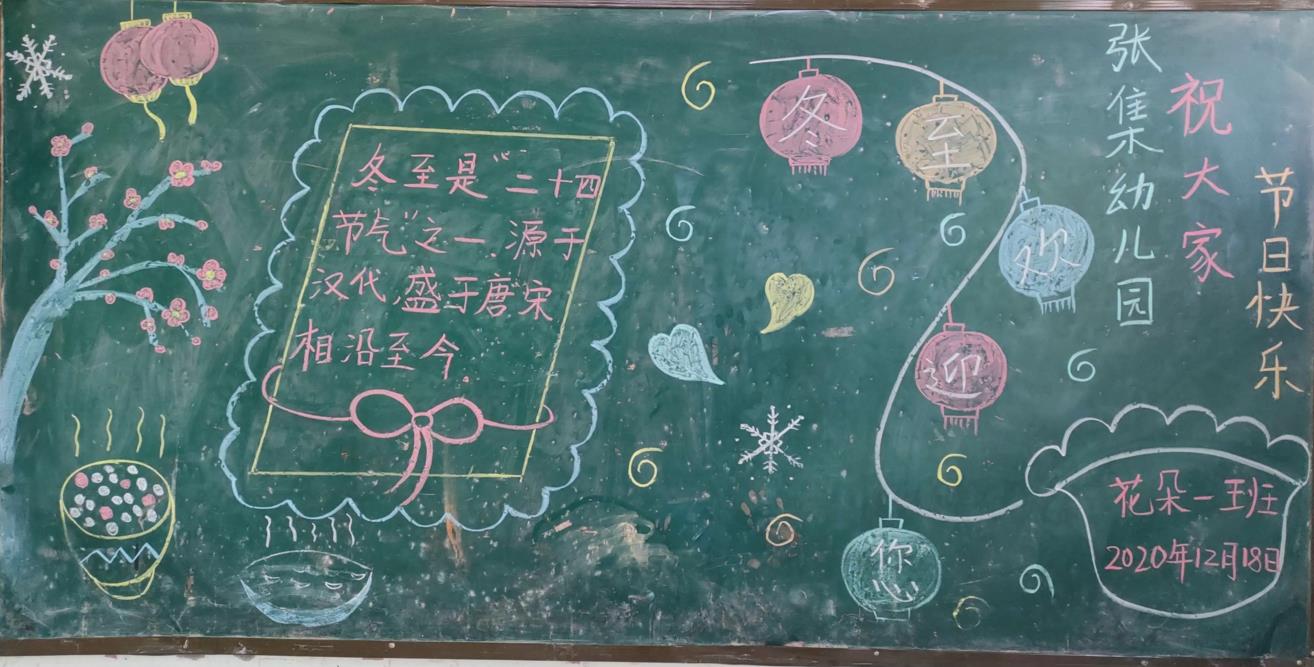 冬至是“二十四
节气”之一.源于
汉代,盛于唐宋
相沿至今
冬
至
欢
迎
你
心
张集幼儿园
祝大家
节日快乐
花朵一班
2020年12月18日